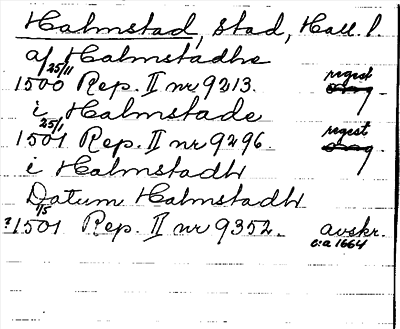 Halmstad, stad, Hall. l.
af Halmstadhe
25/11 1500 Rep. II nr 9213. regest
i Halmstade
25/1 1501 Rep. II nr 9296. regest
i Halmstadh
Datum Halmstadh
?1/5 1501 Rep. II nr 9352. avskr.
c:a 1664